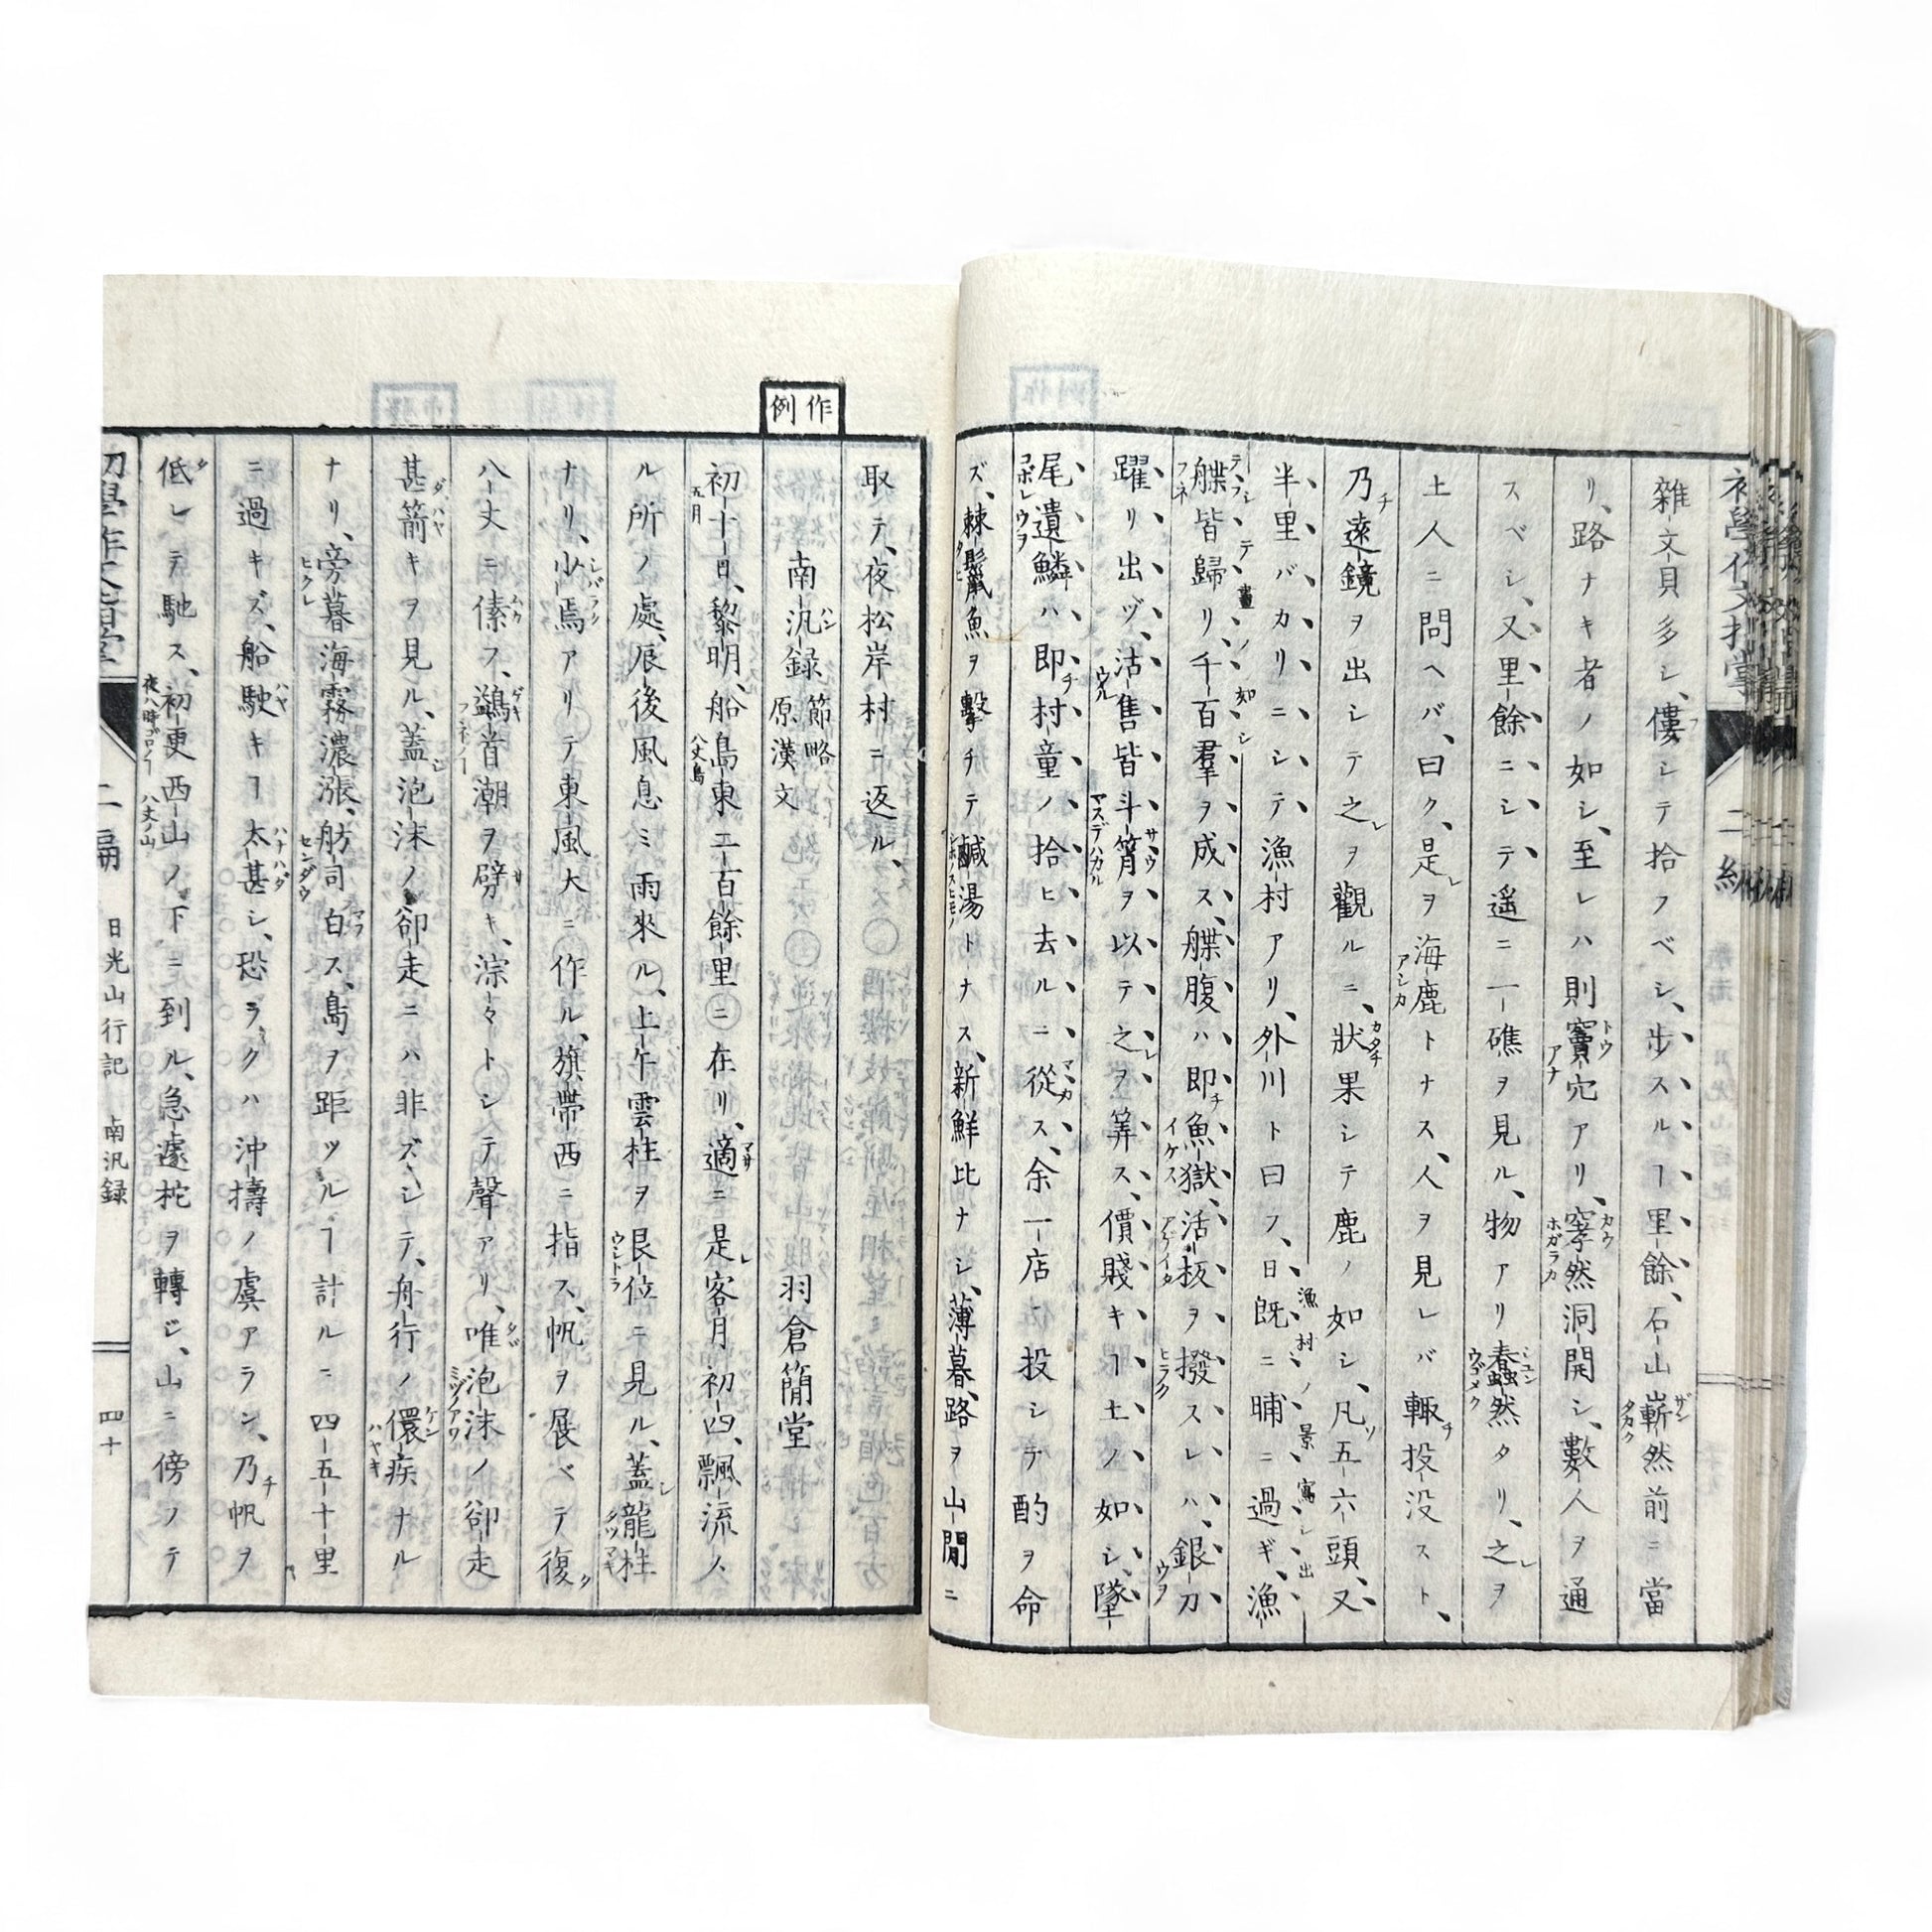 雜文貝多シ、僂シテ拾フベシ、步スルヿ里餘、石山嶄然前ニ當
リ、路ナキ者ノ如シ、至レハ則竇穴アリ、窣然洞開シ、數人ヲ通
スベシ、又里餘ニシテ遥ニ一礁ヲ見ル、物アリ蠢然タリ、之ヲ
土人ニ問ヘバ、曰ク、是ヲ海鹿トナス、人ヲ見レバ輙投没スト、
乃遠鏡ヲ出シテ之ヲ觀ルニ、狀果シテ鹿ノ如シ、凡五六頭、又
半里バカリニシテ漁村アリ、外川ト曰フ、日既ニ晡ニ過ギ、漁
漁村ノ景寫シ出テフシテ畫ノ如シ
艓皆歸リ、千百羣ヲ成ス、艓腹ハ即魚獄、活板ヲ撥スレハ、銀刀
躍リ出ヅ、沽售皆斗筲ヲ以テ之ヲ筭ス、價賤キヿ土ノ如シ、墜
尾遺鱗ハ即村童ノ拾ヒ去ルニ從ス、余一店ニ投シテ酌ヲ命
ズ、棘鬛魚ヲ擊チテ鹹湯トナス、新鮮比ナシ、薄暮路ヲ山間ニ
初學作文指掌 二編
作例
取テ、夜松岸村ニ返ル、
南汎録 節略 原漢文 羽倉簡堂
初十日、黎明、船島東二百餘里ニ在リ、適ニ是客月初四、飄流ス
ル所ノ處、辰後風息ミ雨來ル、上午雲柱ヲ艮位ニ見ル、蓋龍柱
ナリ、少焉アリテ東風大ニ作ル、旗帶西ニ指ス、帆ヲ展ベテ復
八丈ニ傃フ、鷁首潮ヲ劈キ、淙々トシテ聲アリ、唯泡沫ノ卻走
甚箭キヲ見ル、蓋泡沫ノ卻走ニハ非ズシテ、舟行ノ儇疾ナル
ナリ、旁暮海霧濃漲、舫司白ス、島ヲ距ツルヿ計ルニ四五十里
ニ過キズ、船駛キヿ太甚シ、恐ラクハ沖擣ノ虞アラン、乃帆ヲ
低レテ馳ス、初更西山ノ下ニ到ル、急遽柁ヲ轉ジ、山ニ傍フテ
初學作文指掌 二編 日光山行記 南汎録 四十